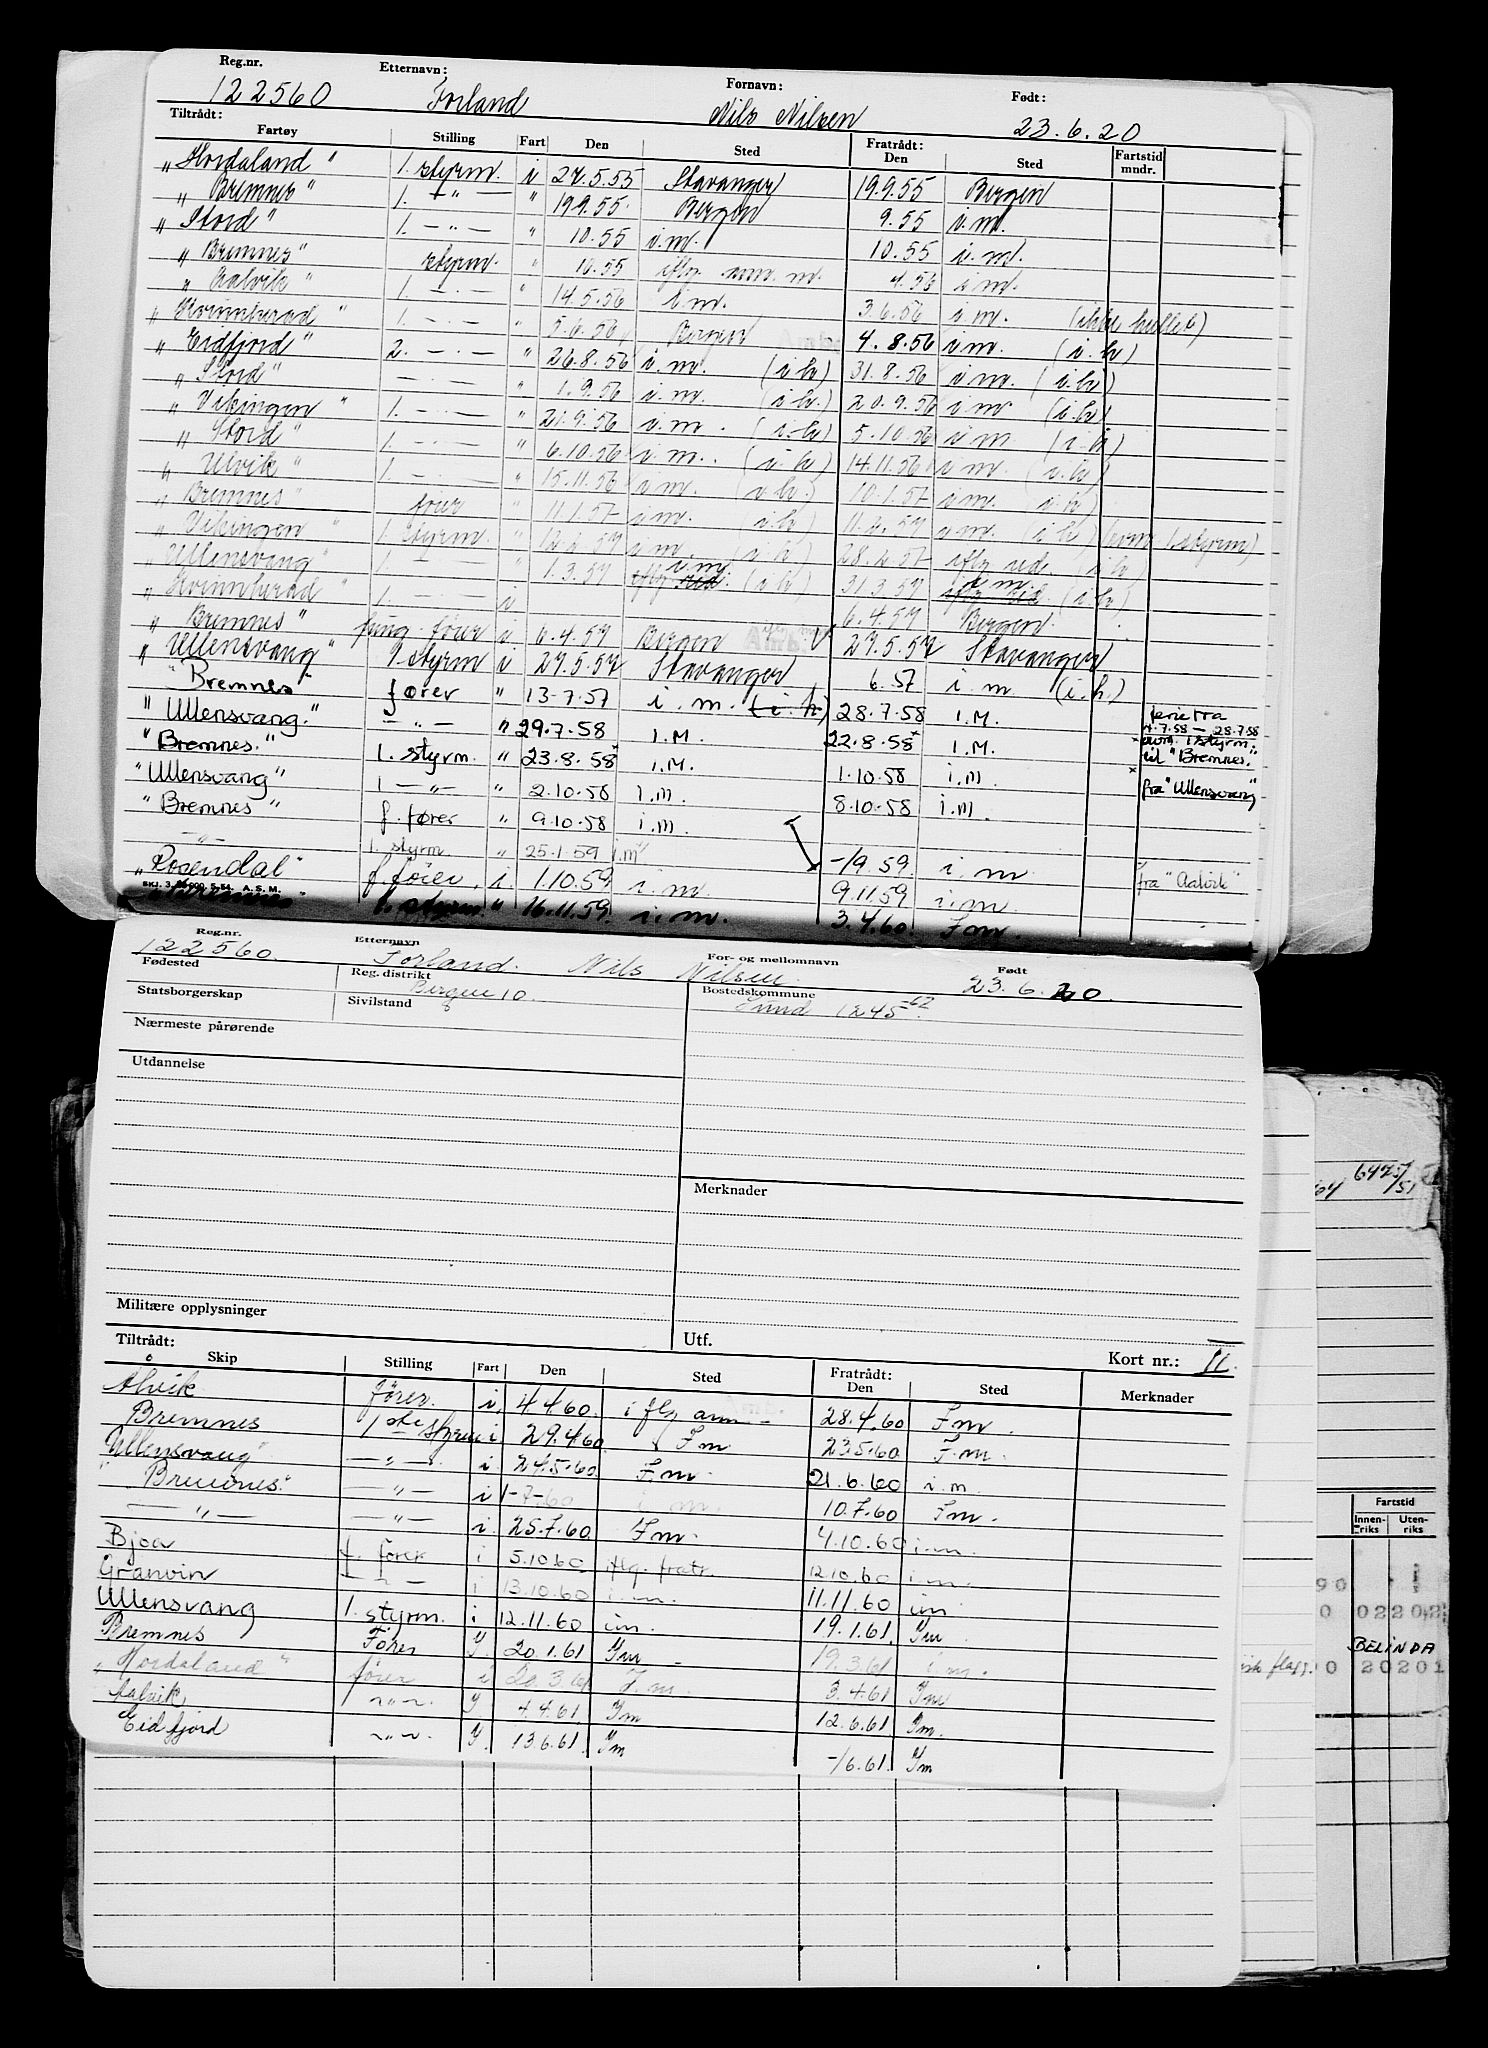 Reg.nr. Etternavn: Fornavn: Født:
122560 Forland Nils Nilsen 23.6.20
Tiltrådt: Fratrådt:
Fartøy Stilling Fart Den Sted Den Sted Fartstid mndr.
"Hordaland" 1. styrm. i 27.5.55 Stavanger 19.9.55 Bergen
"Bremnes" 1. -"- " 19.9.55 Bergen 9.55 i.m.
"Stord" 1. -"- " 10.55 i.m. 10.55 i.m.
"Bremnes" styrm. " 10.55 iflg. m. 4.56 i.m.
"Aalvik" 1. -"- " 14.5.56 i.m. 3.6.56 i.m. (ikke hullet)
"Kvinnherad" 1. -"- " 5.6.56 Bergen 4.8.56 i.m. (i.h)
"Eidfjord" 2. -"- " 26.8.56 i.m. (i.h) 31.8.56 i.m. (i.h)
"Stord" -"- " 1.9.56 i.m. (i.h.) 20.9.56 i.m. (i.h)
"Vikingen" 1. -"- " 21.9.56 i.m. (i.h) 5.10.56 i.m. (i.h)
"Stord" 1. -"- " 6.10.56 i.m. (i.h) 14.11.56 i.m. (i.h)
"Ulvik" 1. -"- " 15.11.56 i.m. (i.h.) 10.1.57 i.m. i.h)
"Bremnes" fører " 11.1.57 i.m. (i.h) 11.2.57 i.m. (i.h) (som 1.styrm)
"Vikingen" 1. styrm. " 12.2.57 i.m. (i.h) 28.2.57 iflg red. (i.h)
"Ullensvang" 1. -"- " 1.3.57 iflg red. i.m. (i.h) 31.3.57 iflg red i.m. (i.h)
"Kvinnherad" 1. -"- i 6.4.57 Bergen
"Bremnes" fung. fører i 6.4.57 Bergen 27.5.57 Stavanger
"Ullensvang" 1 styrm i 27.5.57 Stavanger 6.57 i.m (i.h.)
"Bremnes" fører " 13-7.57 i.m. (i.h) 28.7.58 I.M. ferie fra 4.7.58 - 28.7.58
"Ullensvang." -"- " 29.7.58 I.M. 22.8.58 I.M. 1 styrm. til "Bremnes."
"Bremnes." 1. styrm. " 23.8.58 I.M. 1.10.58 i.m. fra "Ullensvang"
"Ullensvang" 1 -"- " 2.10.58 I.M. 8.10.58 i.m.
"Bremnes" f. fører " 9.10.58 i.m.
-"- 1. styrm " 25.1.59 i.m -/9.59 i.m fra "Aalvik"
"Rosendal" f fører i. 1.10.59 i.m. 9.11.59 i.m.
"Bremnes" 1. styrm. " 16.11.59. i.m. 3.4.60. I.m.
A. S. M.
Reg.nr. Etternavn For- og mellomnavn Født
122560. Forland. Nils Nilsen. 23.6.20.
Fødested Reg. distrikt Bergen 10. Bostedskommune Sund 1245
Statsborgerskap Sivilstand
Nærmeste pårørende
Utdannelse
Merknader
Militære opplysninger
Utf.
Tiltrådt: Fratrådt: Kort nr.: II.
Skip Stilling Fart Den Sted Den Sted Merknader
Ålvik fører. i. 4.4.60. i flg ann 28.4.60 I.m.
Bremnes 1ste styrm i 29.4.60 I.m 23.5.60. I.m.
Ullensvang -"- i. 24.5.60. I.m. 21.6.60 i.m
"Bremnes." -"- i 1-7-60 i.m. 10.7.60 I.m.
-"- -"- i. 25.7.60. I.m. 4.10.60 i.m.
Bjoa f. fører i 5.10.60 iflg. fratr. 12.10.60 i.m.
Granvin -"- i 13.10.60 i.m. 11.11.60 i.m
Ullensvang 1. styrm. i 12.11.60 i.m. 19.1.61. I.m.
Bremnes Fører I. 20.1.61 I.m 19.3.61 i.m.
"Hordaland" fører i 20.3.61 I.m. 3.4.61 I.m
Aalvik -"- I. 4.4.61 I.m 12.6.61 I.m.
Eidfjord -"- I. 13.6.61. I.m -/6.61. I.m
6475/51
64
Fartstid
Innenriks Utenriks
90
0 02202
BELINDA
0 20201